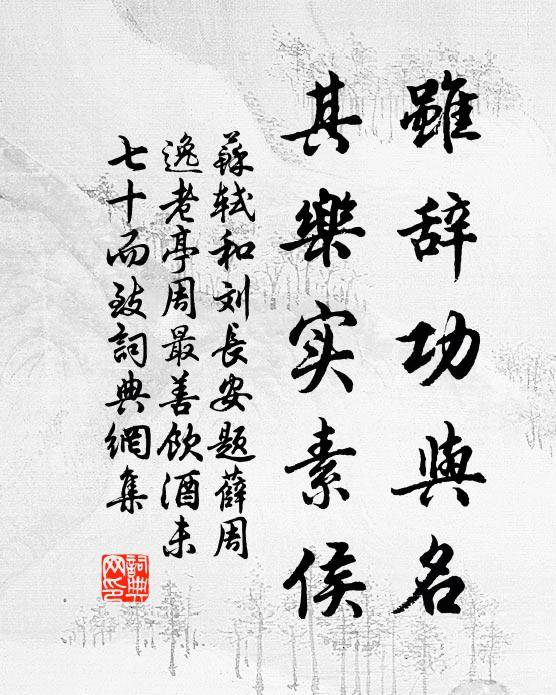 雖辞功與名
其樂实素侯
蘇轼和刘長安题薛周
逸老亭周最善飲酒未
七十而致詞典網集
詞典网印